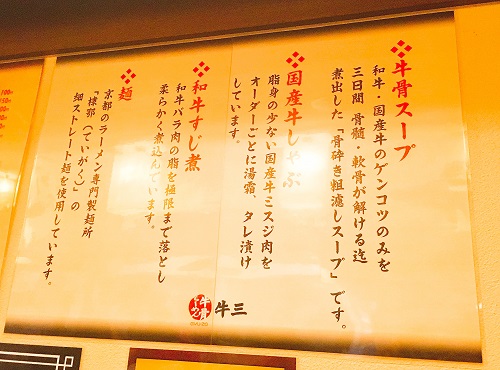 ※牛骨スープ
和牛・国産牛のゲンコツのみを
三日間 骨髄・軟骨が解ける迄
煮出した「骨砕き粗濾しスープ」です。
※国産牛しゃぶ
脂身の少ない国産牛ミスジ肉を
オーダーごとに湯霜、タレ漬け
しています。
※和牛すじ煮
和牛バラ肉の脂を極限まで落とし
柔らかく煮込んでいます。
※麺
京都のラーメン専門製麺所
「棣鄂(ていがく)」の
細ストレート麺を使用しています。
牛三